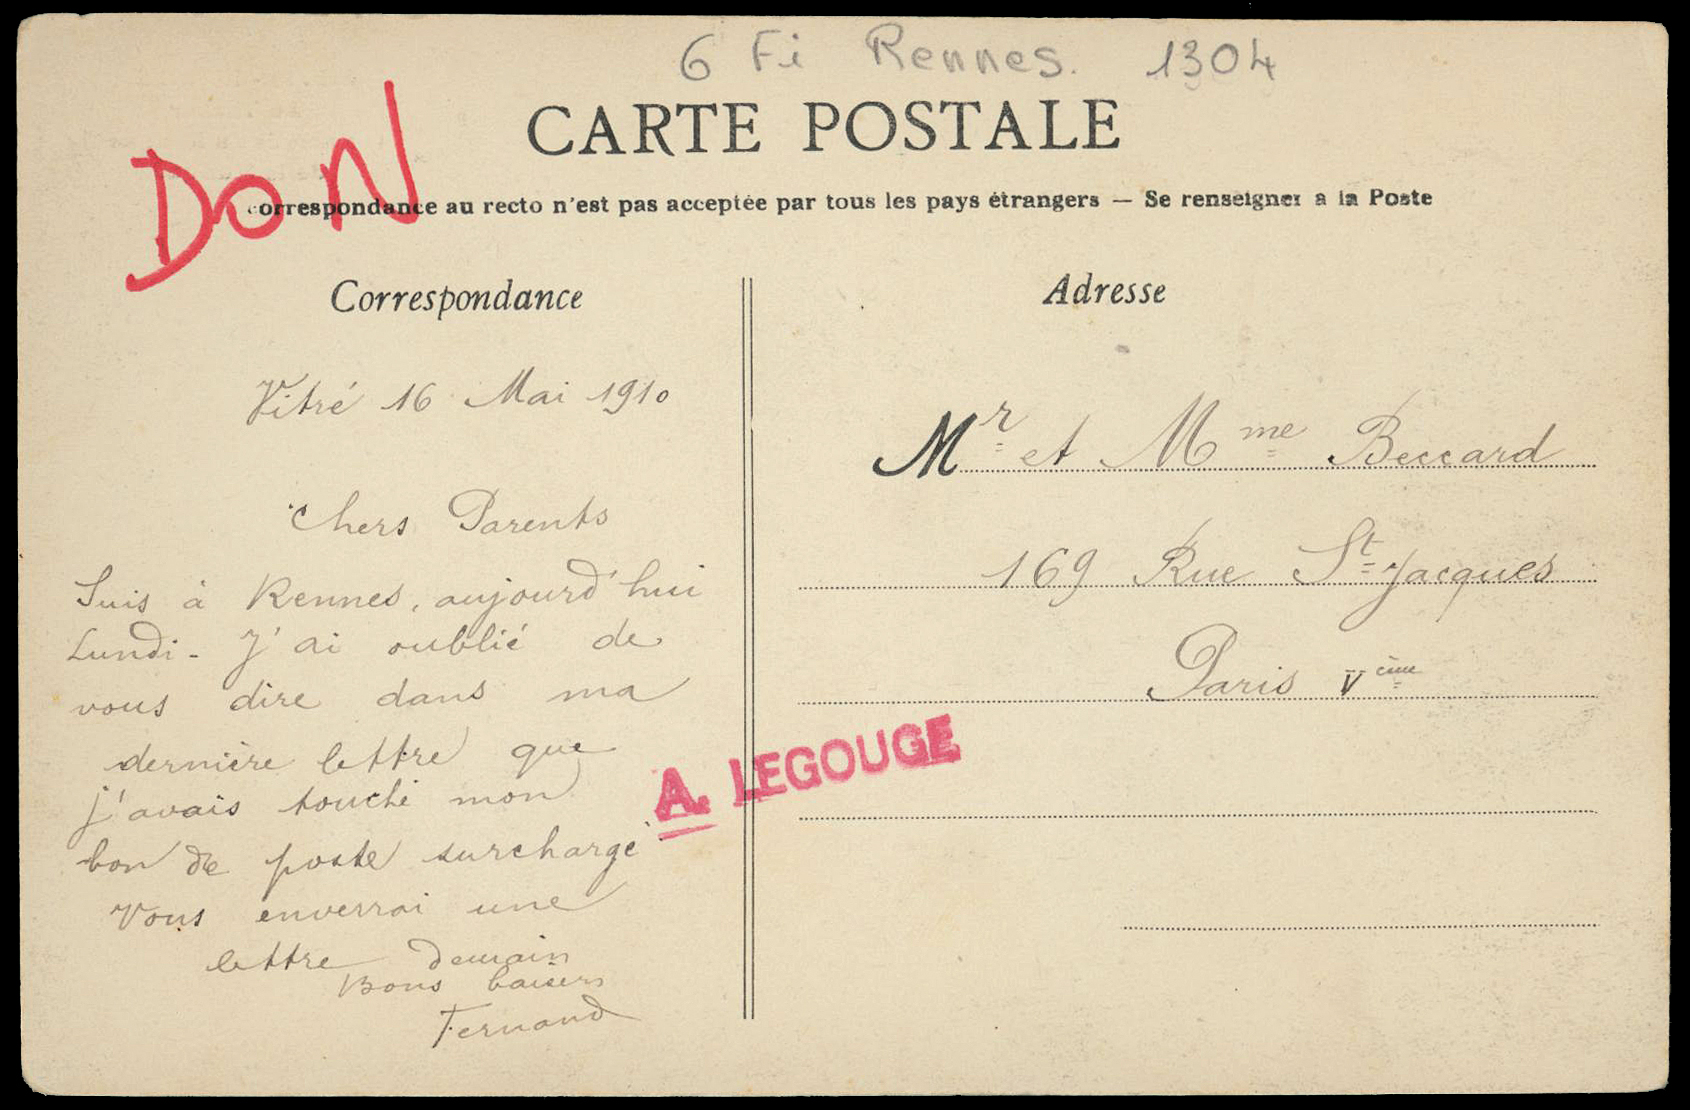 6 Fi Rennes. 1304
CARTE POSTALE
DON
correspondance au recto n'est pas acceptée par tous les pays étrangers — Se renseigner a la Poste
Correspondance
Vitré 16 Mai 1910
Chers Parents
Suis à Rennes, aujourd'hui
Lundi - J'ai oublié de
vous dire dans ma
dernière lettre que
j'avais touché mon
bon de poste surchargé
Vous enverrai une
lettre demain
Bons baisers
Fernand
A. LEGOUGE
Adresse
Mr et Mme Beccard
169 Rue St Jacques
Paris Vème